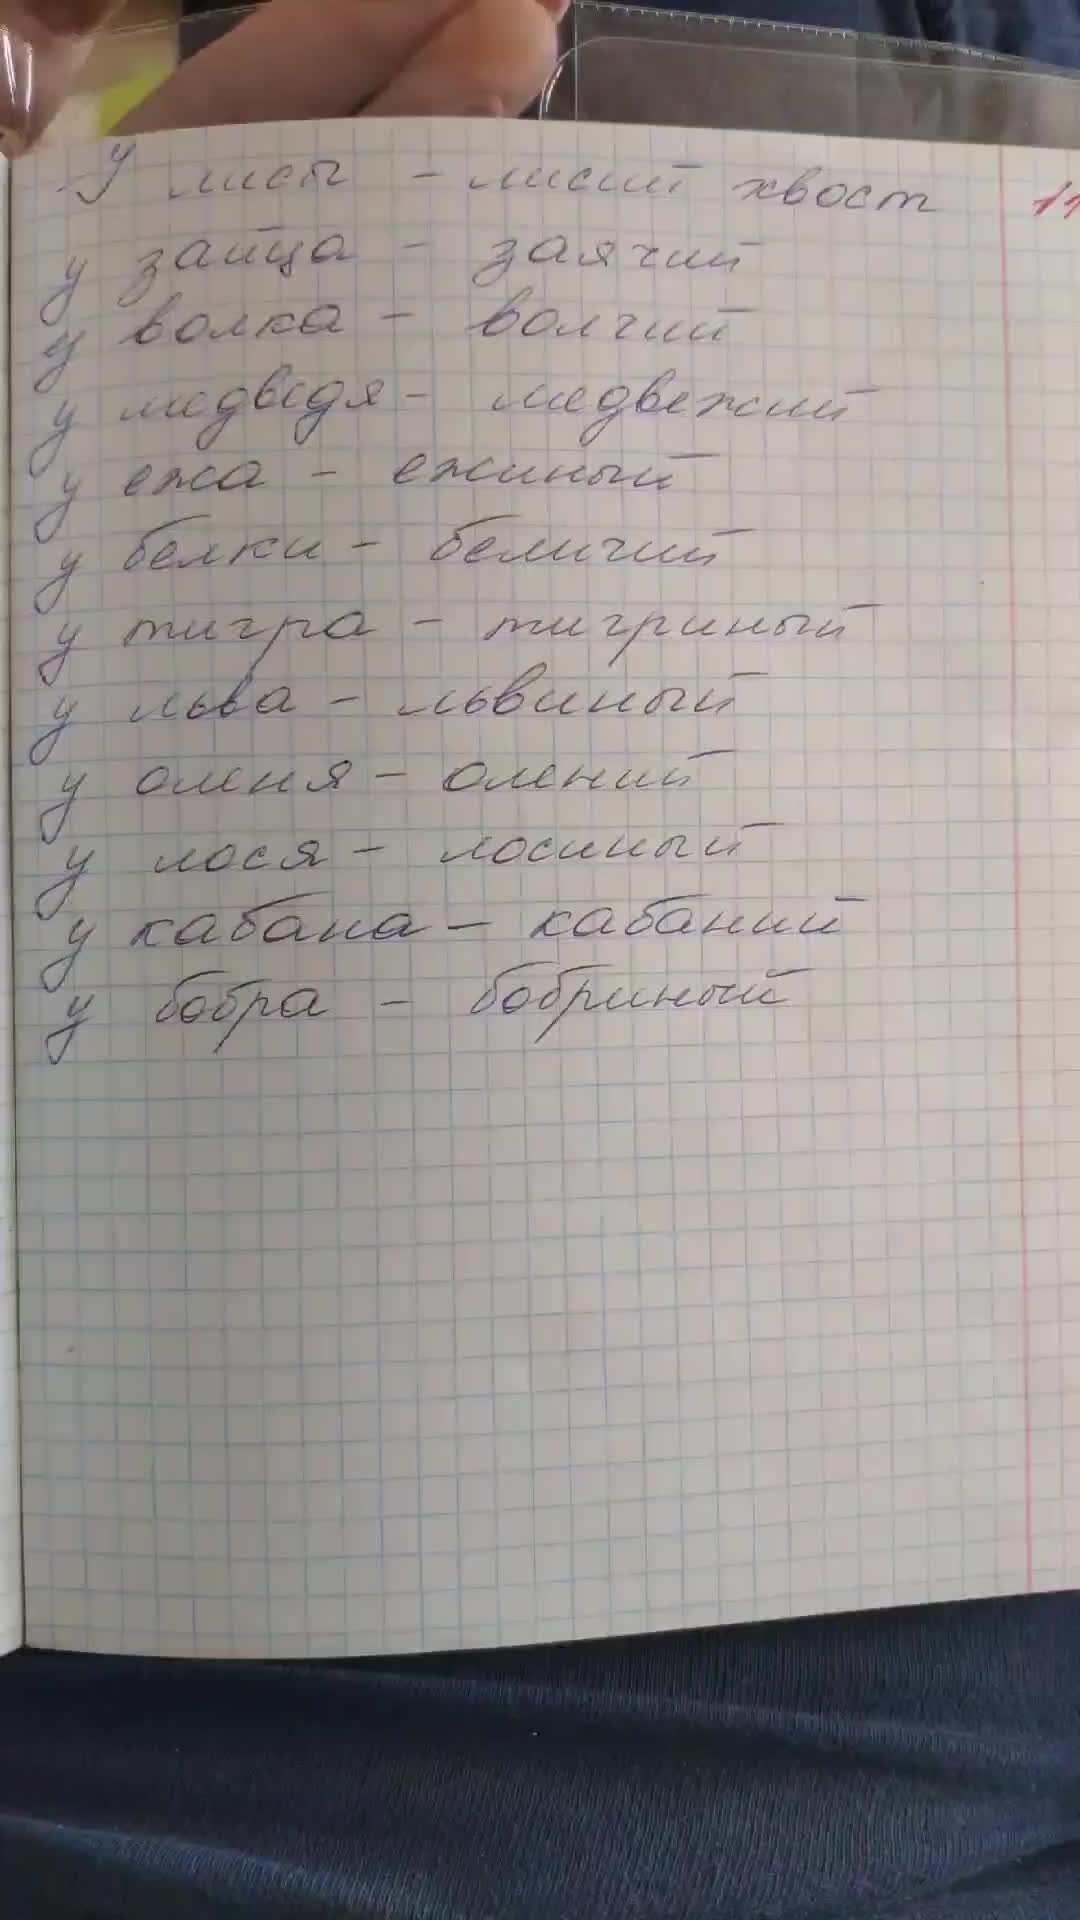 У лисы - лисий хвост 11
у зайца - заячий
у волка - волчий
у медведя - медвежий
у ежа - ежиный
у белки - беличий
у тигра - тигриный
у льва - львиный
у оленя - олений
у лося - лосиный
у кабана - кабаний
у бобра - бобриный